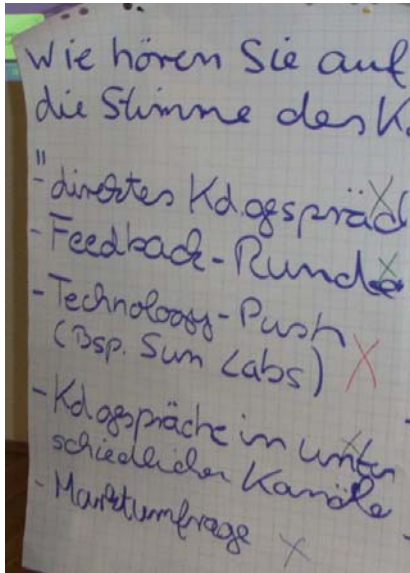 Wie hören Sie auf
die Stimme des K
"
- direktes Kd.gespräc
- Feedback-Runde
- Technology-Push
(Bsp. Sun Labs)
- Kd.gespräche in unter
schiedlicher Kanäle
- Marktumfrage